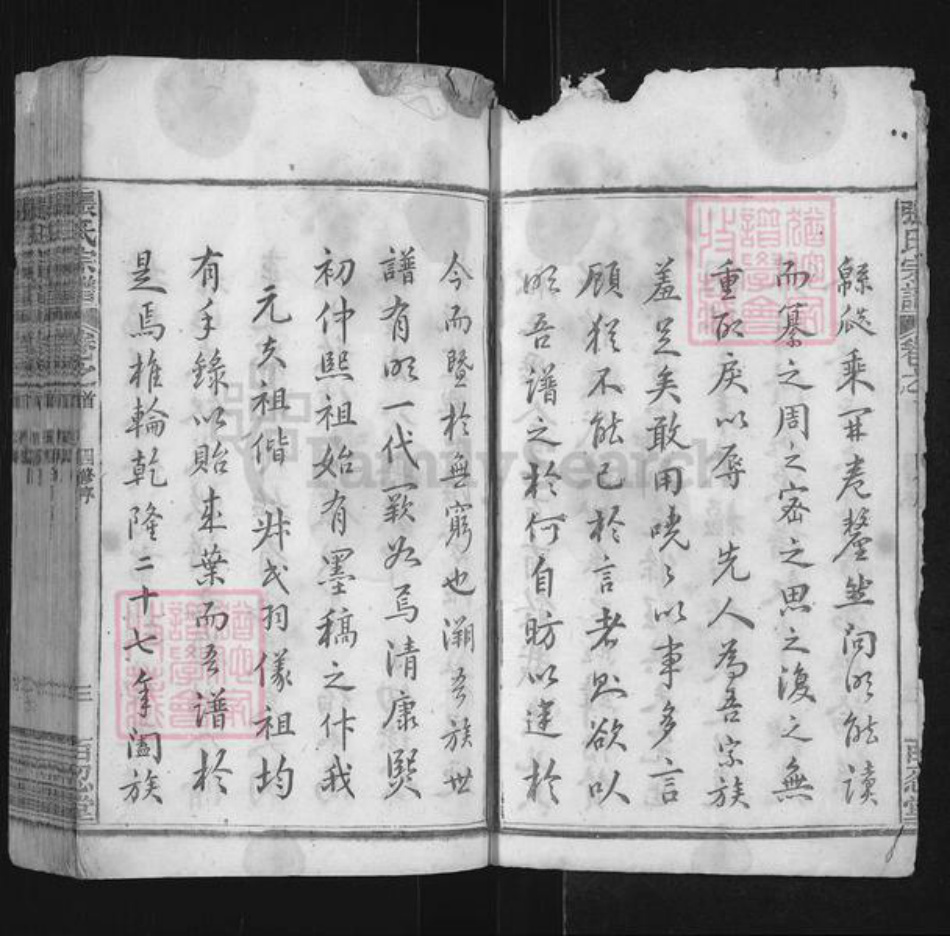 張氏宗譜
緜延乘开卷釐然问所能讀
而纂之周之密之思之復之無
重取戾以辱先人為吾宗族
羞足矣敢用曉々以事多言
顧猶不能已於言者則欲以
明吾譜之於何自昉以逮於
今而暨於無窮也溯吾族世
譜有明一代闕如焉清康熙
初仲熙祖始有墨稿之作我
元夫祖偕
儀祖均
有手錄以貽來葉而吾譜於
是焉椎輪乾隆二十七年闔族
張氏宗譜
卷之首
四修序
三
百忍堂
百忍堂
FamilySearch